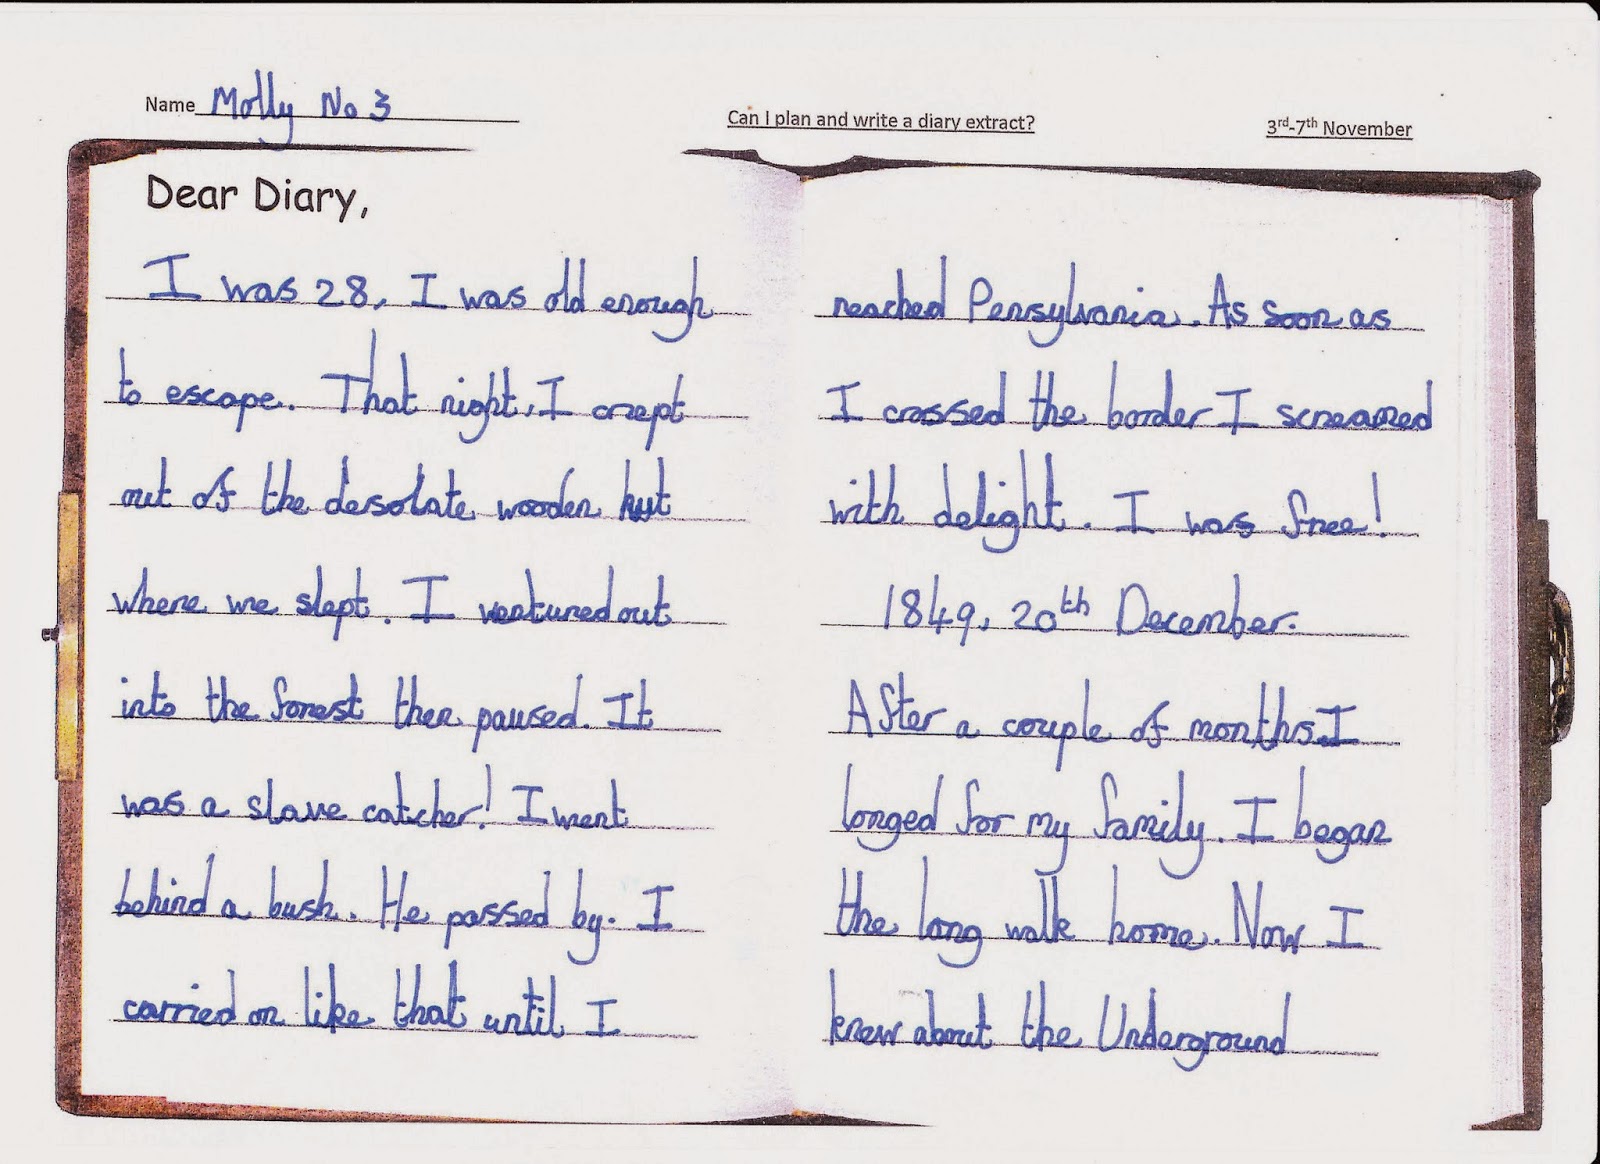 Name Molly No 3
Can I plan and write a diary extract?
3rd-7th November
Dear Diary,
I was 28, I was old enough
to escape. That night, I crept
out of the desolate wooden hut
where we slept. I ventured out
into the forest then paused. It
was a slave catcher! I went
behind a bush. He passed by. I
carried on like that until I
reached Pensylvania. As soon as
I crossed the border I screamed
with delight. I was free!
1849, 20th December.
After a couple of months I
longed for my family. I began
the long walk home. Now I
knew about the Underground